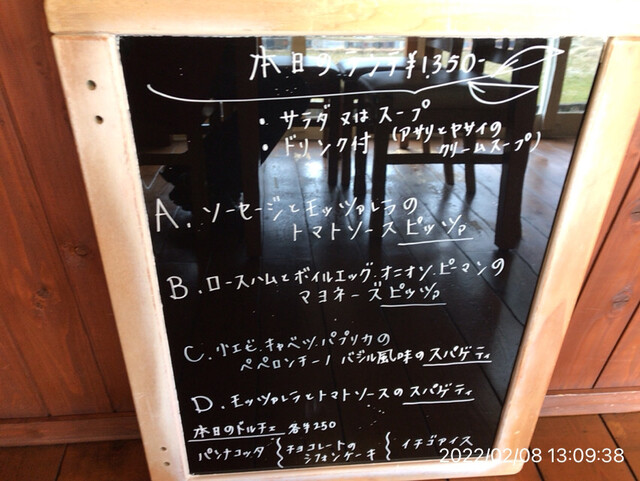 本日のランチ ¥1.350-
・サラダ又はスープ
・ドリンク付 (アサリとヤサイの
クリームスープ)
A.ソーセージとモッツァレラの
トマトソースピッツァ
B.ロースハムとボイルエッグ.オニオン.ピーマンの
マヨネーズピッツァ
C.小エビ.キャベツ.パプリカの
ペペロンチーノ バジル風味のスパゲティ
D.モッツァレラとトマトソースのスパゲティ
本日のドルチェ 各¥250
パンナコッタ { チョコレートの
シフォンケーキ { イチゴアイス
2022/02/08 13:09:38